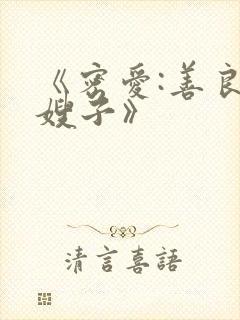 《密爱:善良
嫂子》
清言喜語